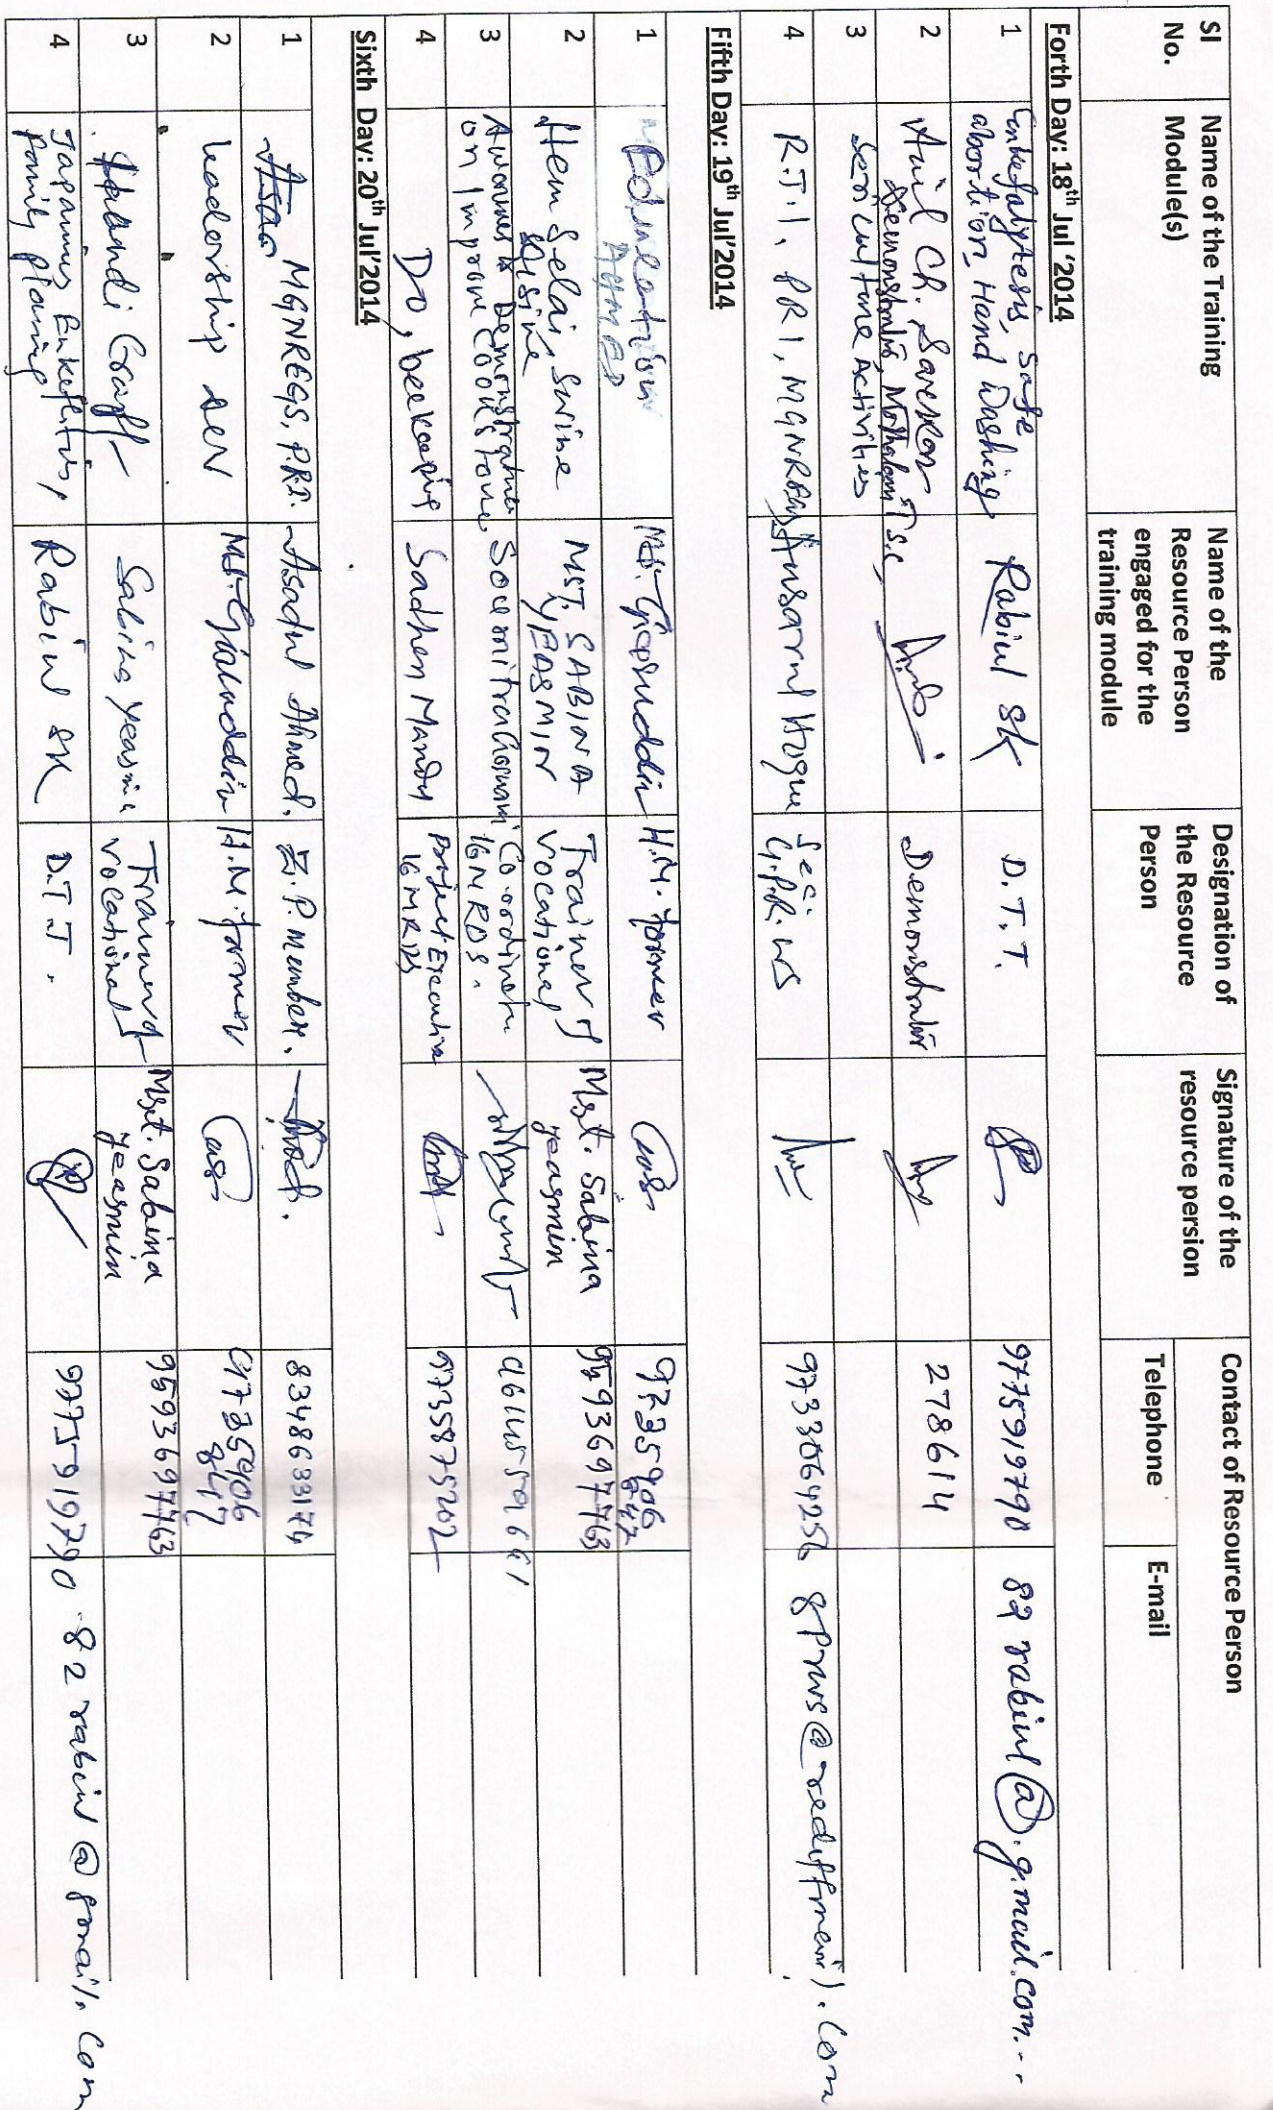 Sl No. Name of the Training Module(s) Name of the Resource Person engaged for the training module Designation of the Resource Person Signature of the resource persion Contact of Resource Person
Telephone E-mail
Forth Day: 18th Jul '2014
1 safe abortion, Hand Washing Rabiul SK D.T.T. 9775919790 82 rabiul@.gmail.com
2 Anil Ch. Sarkar Demonstrator, T.S.C, Demonstrator 278614
3 Sericulture Activities
4 R.T.I, PRI, MGNREGS Ansarul Hoque Sec. G.P.R.WS 9733064256 gprws@rediffmail.com
Fifth Day: 19th Jul'2014
1 H.M. former 9735906847
2 Hem Selai, Swine MST. SABINA YEASMIN Trainer of Vocational Mst. Sabina yeasmin 9593697763
3 Awareness & Demonstration on Improve Cook stove Soumitra Goswami Co-ordinator IGMRDS.
4 DO, beekeeping Sadhen Mandy Project Executive IGMRDS 9735875202
Sixth Day: 20th Jul'2014
1 MGNREGS, P.R.I. Asadul Ahmed. Z.P. Member. 8348633174
2 leadership dev H.M. former 9735906847
3 Handi Craft Sabina Yeasmin Trainer of vocational Mst. Sabina yeasmin 9593697763
4 family planing Rabiul SK D.T.T. 9775919790 82 rabiul@gmail.com